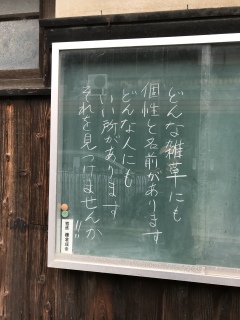 どんな雑草にも
個性と名前があります
どんな人にも
いい所があります
それを見つけませんか